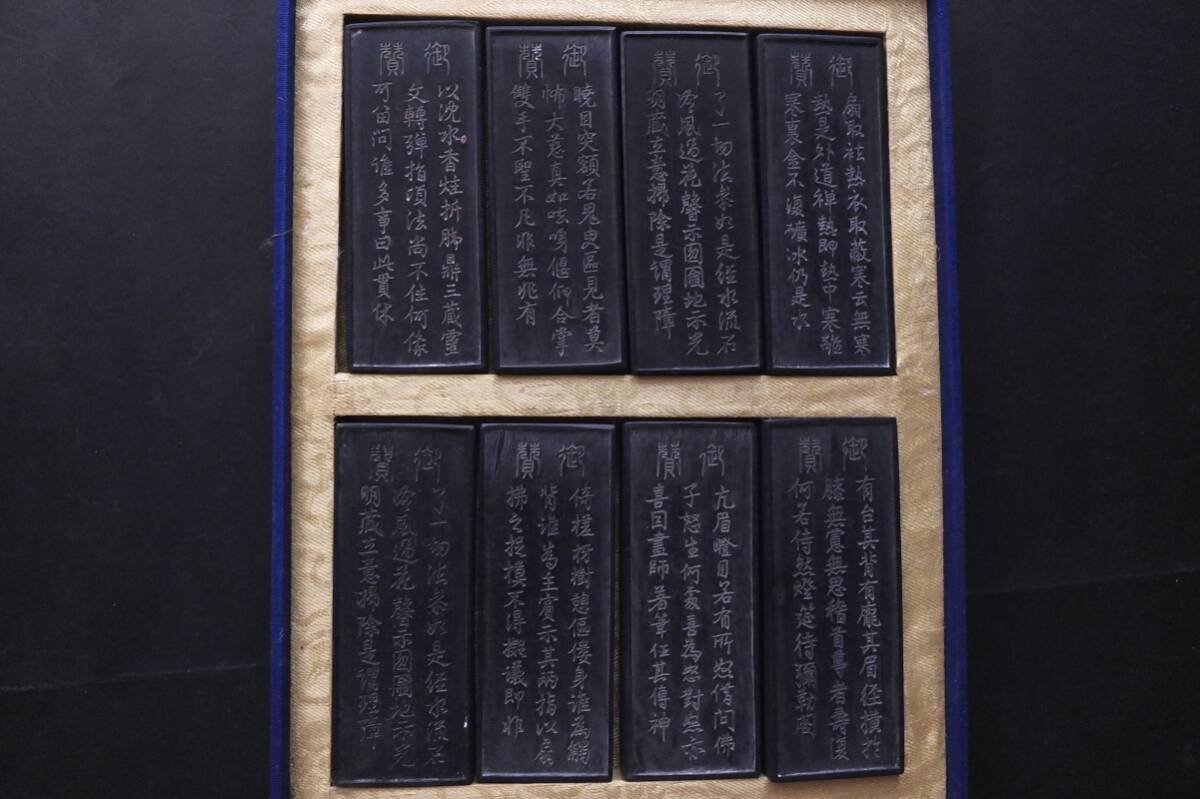 御贊
扇取祛熱衣取蔽寒云無寒
熱是外道禪熱即熱中寒離
寒裏金不復礦冰仍是水
御贊
了一切法若如是經水流石
冷風過花馨示囫圇地示光
明藏立意掃除是謂理障
御贊
曉目突額若鬼臾區見者莫
怖大慈真如咳鳴偃仰合掌
雙手不聖不凡非無非有
御贊
以沈水香炷折腳鼎三藏靈
文轉彈指頃法尚不住何像
可留問誰多事曰此貫休
御贊
有台其背有龐其眉經橫於
膝無慮無思稽首尊者壽復
何若侍然燈筵待彌勒閣
御贊
亢眉瞪目若有所怒借問佛
子怒生何處喜為怒對怒亦
喜因畫師著筆任其傳神
御贊
倚槎枒樹憩傴僂身誰為觸
背誰為主賓示其兩指以扇
拂之捉摸不得擬議即非
御贊
了一切法若如是經水流石
冷風過花馨示囫圇地示光
明藏立意掃除是謂理障